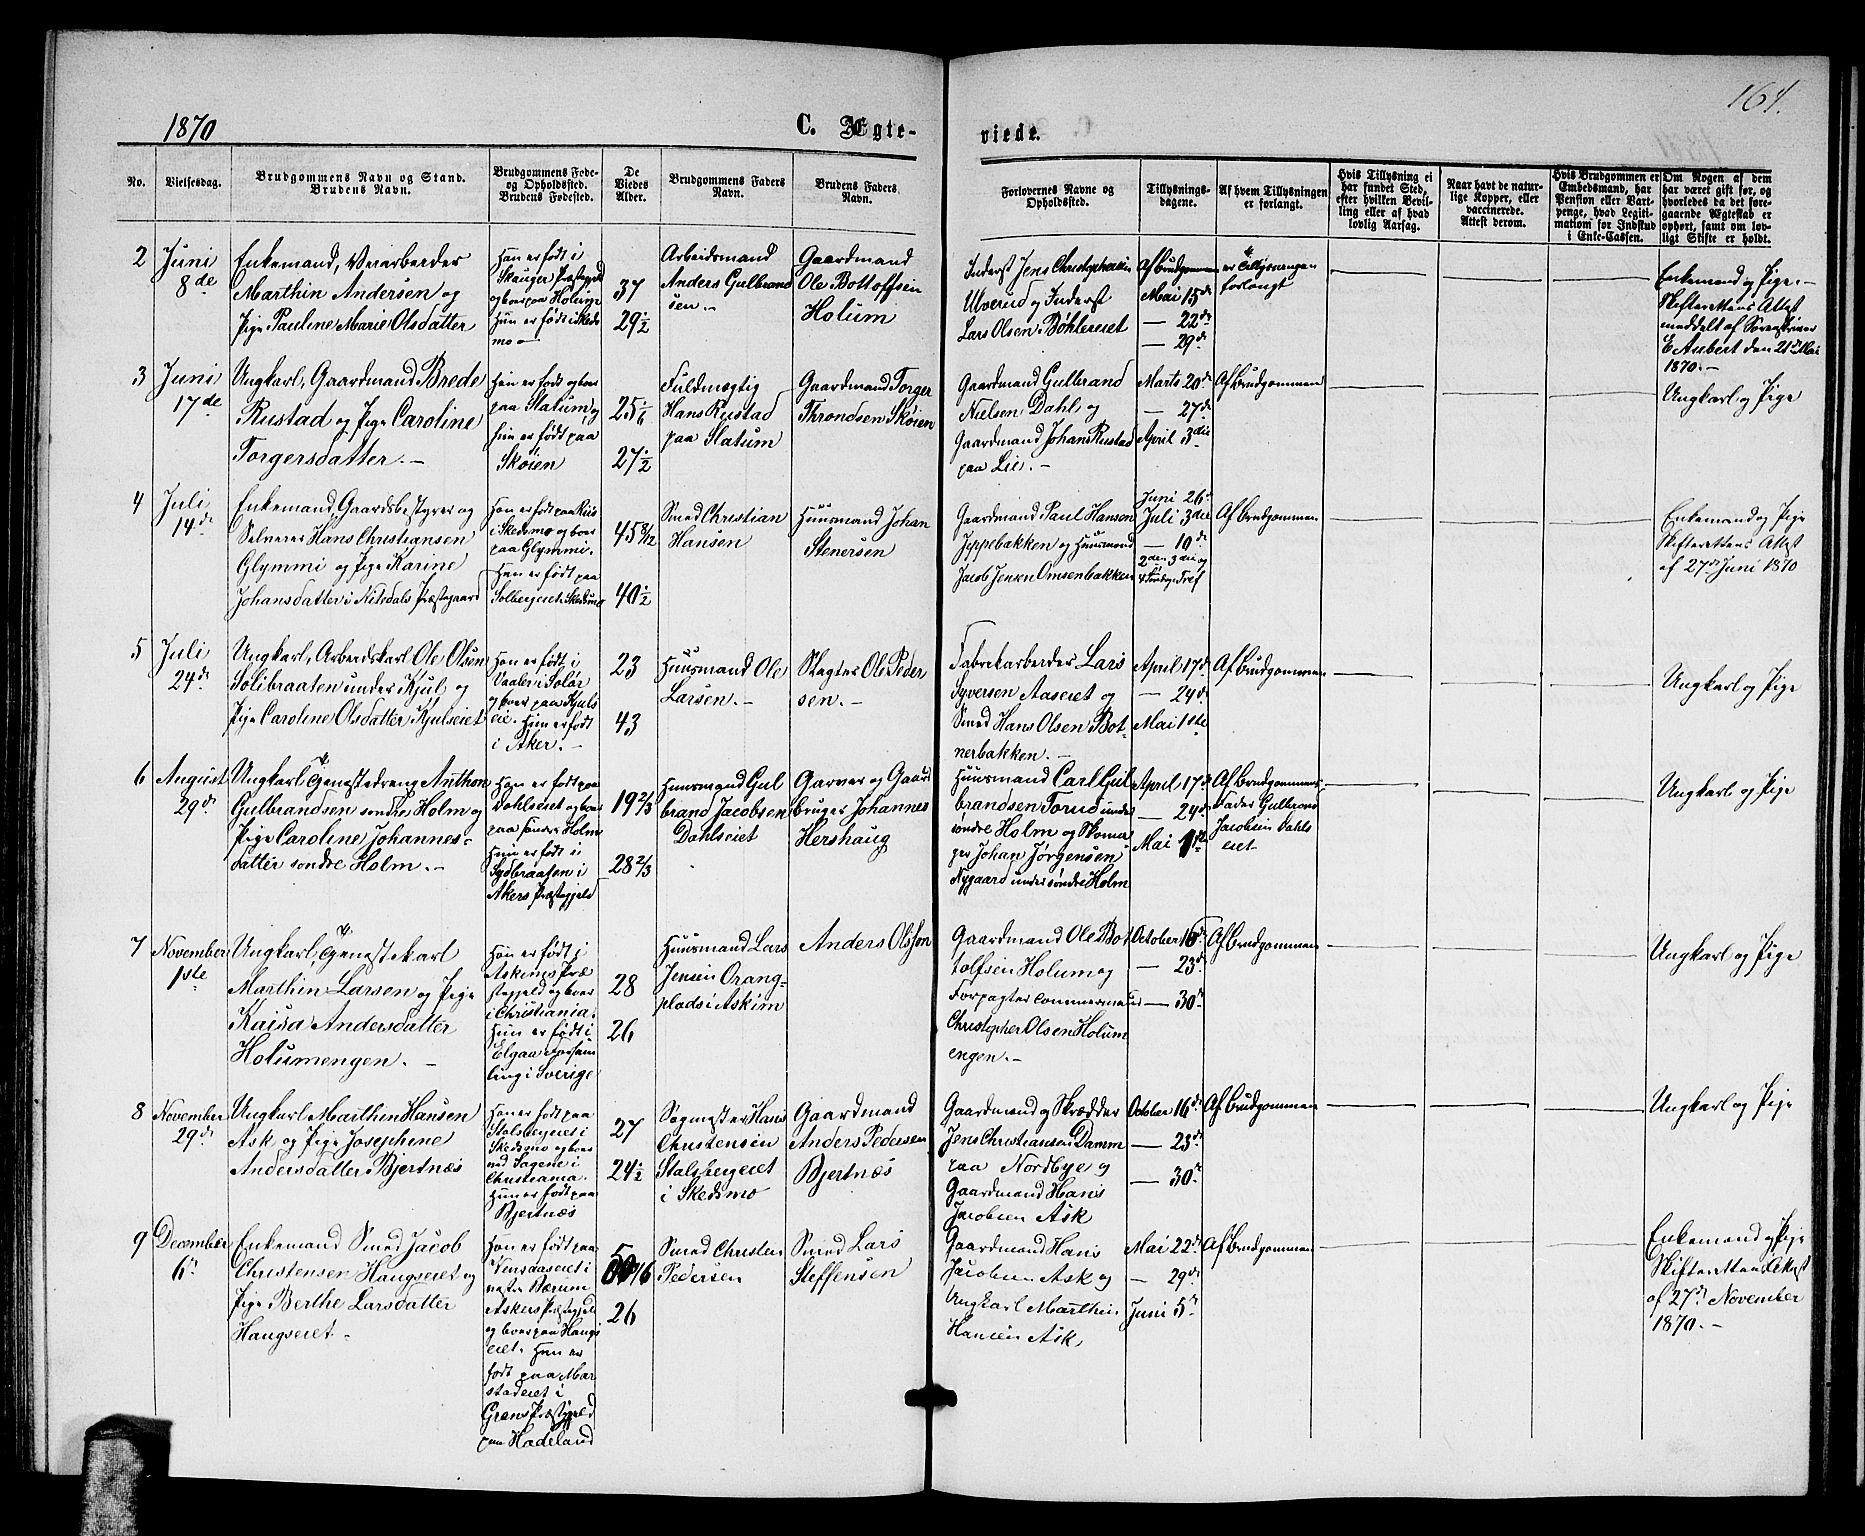 1870
C. Ægte-
viede.
161.
No.
Vielsesdag.
Brudgommens Navn og Stand.
Brudens Navn.
Brudgommens Føde-
og Opholdssted.
Brudens Fødested.
De
Viedes
Alder.
Brudgommens Faders
Navn.
Brudens Faders
Navn.
Forlovernes Navne og
Opholdssted.
Tillysnings-
dagene.
Af hvem Tillysningen
er forlangt.
Hvis Tillysning ei
har fundet Sted,
efter hvilken Bevil-
ling eller af hvad
lovlig Aarsag.
Naar havt de natur-
lige Kopper, eller
vaccinerede.
Attest derom.
Hvis Brudgommen er
Embedsmand, har
Pension eller Vart-
penge, hvad Legiti-
mation for Indskud
i Enke-Cassen.
Om Nogen af dem
har været gift før, og
hvorledes da det fore-
gaaende Ægteskab er
ophørt, samt om lov-
ligt Skifte er holdt.
2
Juni
8de
Enkemand, Veiarbeider
Marthin Andersen og
Pige Pauline Marie Olsdatter
Han er født i
Skauger Præstegjeld
og boer paa Holum
Hun er født i Skeds
mo
37
29 1/2
Arbeidsmand
Anders Gulbrand
sen.
Gaardmand
Ole Bottolfsen
Holum
Inderst Jens Christophersen
Ulverud og Inderst
Lars Olsen Bøhlereiet
Af Brudgommen
Mai 15de
— 22de
— 29de
er Tillysningen
forlangt
Enkemand og Pige.
Skifterettens Attest
meddelt af Sorenskriver
E Aubert den 21de Mai
1870.
3
Juni
17de
Ungkarl, Gaardmand Brede
Rustad og Pige Caroline
Torgersdatter.
Han er født og boer
paa Slatum og
hun er født paa
Skøien
25 1/6
27 1/2
Fuldmægtig
Hans Rustad
paa Slatum
Gaardmand Torger
Throndsen Skøien
Gaardmand Gulbrand
Nielsen Dahl og
Gaardmand Johan Rustad
paa Lie.
Marts 20de
— 27de
April 3die
Af Brudgommen
Ungkarl og Pige
4
Juli
14de
Enkemand, Gaardsbestyrer og
Selveier Hans Christiansen
Glymmi og Pige Karine
Johansdatter i Nitedals Præstegaard
Han er født paa Riis
i Skedsmo og boer
paa Glymmi.
Hun er født paa
Solbergeiet i Skedsmo
45 8/12
40 1/2
Smed Christian
Hansen
Huusmand Johan
Stenersen
Gaardmand Paul Hansen
Jeppebakken og Huusmand
Jacob Jensen Omsenbakken
Juni 26de
Juli 3die
— 10de
2den 3die og
4 Søndag e Tref
Af Brudgommen
Enkemand og Pige
Skifterettens Attest
af 27de Juni 1870
5
Juli
24de
Ungkarl, Arbeidskarl Ole Olsen
Solibraaten under Kjul og
Pige Caroline Olsdatter Kjulseiet
Han er født i
Vaaler i Solør
og boer paa Kjuls
eie. Hun er født
i Aker.
23
43
Huusmand Ole
Larsen.
Slagter Ole Peder
sen.
Fabrikarbeider Lars
Syversen Aaseiet og
Smed Hans Olsen Bot-
nerbakken.
April 17de
— 24de
Mai 1ste
Af Brudgommen
Ungkarl og Pige
6
August
29de
Ungkarl Tjenestedreng Anthon
Gulbrandsen søndre Holm og
Pige Caroline Johannes-
datter søndre Holm.
Han er født paa
Dahlseiet og boer
paa søndre Holm
Hun er født i
Sydbraaten i
Akers Præstegjeld
19 2/3
28 2/3
Huusmand Gul
brand Jacobsen
Dahlseiet
Garver og Gaard
bruger Johannes
Hershaug
Huusmand Carl Gul
brandsen Torud under
søndre Holm og Skoma
ger Johan Jørgensen
Nygaard under søndre Holm
April 17de
— 24de
Mai 1ste
Af Brudgommens
Fader Gulbrand
Jacobsen Dahls
eiet
Ungkarl og Pige
7
November
1ste
Ungkarl, Tjenestekarl
Marthin Larsen og Pige
Kaisa Andersdatter
Holumengen.
Han er født i
Askims Præ
stegjeld og boer
i Christiania.
Hun er født i
Elgaa Forsam
ling i Sverige
28
26
Huusmand Lars
Jensen Orang-
plads i Askim
Anders Olsson
Gaardmand Ole Bot
tolfsen Holum og
Forpagter
Christopher Olsen Holum
engen.
October 16de
— 23de
— 30te
Af Brudgommen
Ungkarl og Pige
8
November
29de
Ungkarl Marthin Hansen
Ask og Pige Josephine
Andersdatter Bjertnæs
Han er født paa
Stalsbergeiet i
Skedsmo og boer
ved Sagene i
Christiania.
Hun er født paa
Bjertnæs
27
24 1/2
Sagmester Hans
Christensen
Stalsbergeiet
i Skedsmo
Gaardmand
Anders Pedersen
Bjertnæs
Gaardmand og Skrædder
Jens Christiansen Damm
paa Nordbye og
Gaardmand Hans
Jacobsen Ask
October 16de
— 23de
— 30te
Af Brudgommen
Ungkarl og Pige
9
December
6te
Enkemand Smed Jacob
Christensen Haugseiet og
Pige Berthe Larsdatter
Haugseiet.
Han er født paa
i
Bærum
Askers Præstegjeld
og boer paa Haugs
eiet. Hun er
født paa Mar
stadeiet i
Grans Præstegjeld
paa Hadeland
26
Smed Christen
Pedersen
Smed Lars
Steffensen
Gaardmand Hans
Jacobsen Ask og
Ungkarl Marthin
Hansen Ask
Mai 22de
— 29de
Juni 5te
Af Brudgommen
Enkemand og Pige
Skifterettens Attest
af 27de November
1870.